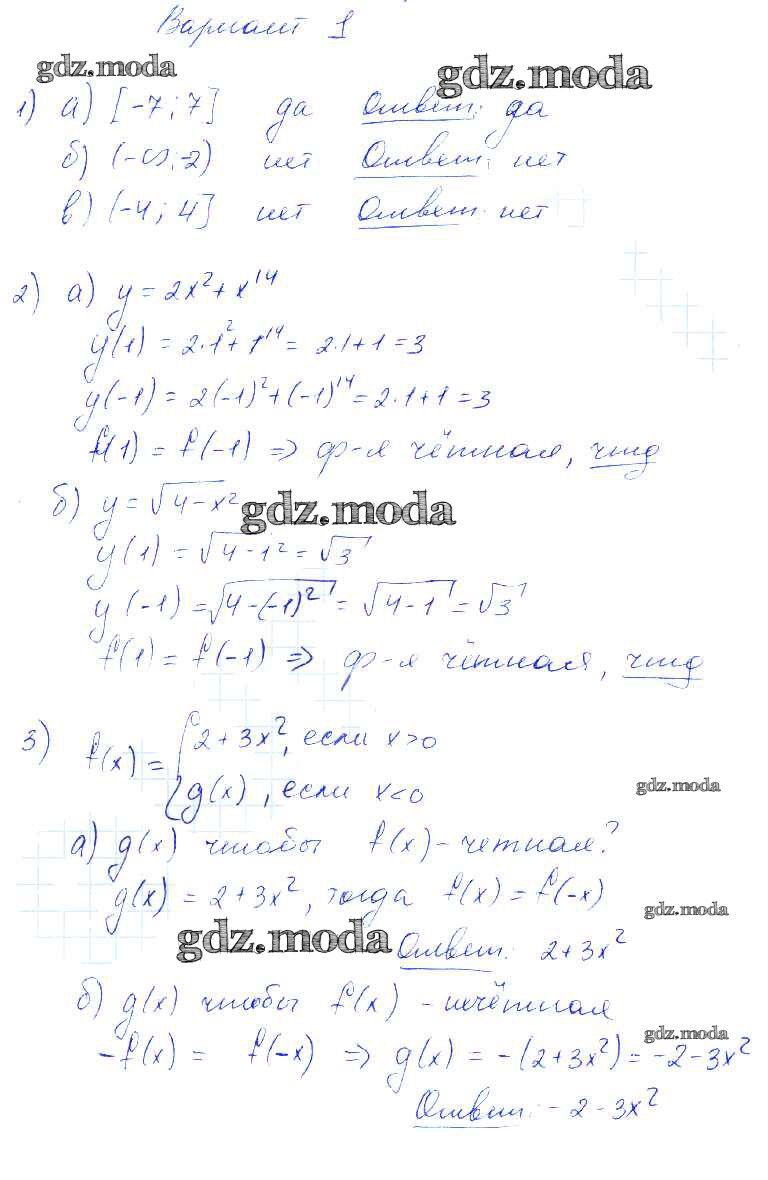 Вариант 1
gdz.moda
gdz.moda
1) а) [-7; 7] да Ответ: да
б) (-∞; -2) нет Ответ: нет
в) (-4; 4] нет Ответ: нет
2) а) y = 2x² + x¹⁴
y(1) = 2·1² + 1¹⁴ = 2·1+1 = 3
y(-1) = 2(-1)² + (-1)¹⁴ = 2·1+1 = 3
f(1) = f(-1) => ф-я чётная, чтд
б) y = √4-x²
gdz.moda
y(1) = √4-1² = √3
y(-1) = √4-(-1)² = √4-1 = √3
f(1) = f(-1) => ф-я чётная, чтд
3) f(x) = { 2+3x², если x>0
g(x), если x<0
gdz.moda
а) g(x) чтобы f(x) - четная?
g(x) = 2+3x², тогда f(x) = f(-x)
gdz.moda
gdz.moda
Ответ: 2+3x²
б) g(x) чтобы f(x) - нечётная
gdz.moda
-f(x) = f(-x) => g(x) = -(2+3x²) = -2-3x²
Ответ: -2-3x²